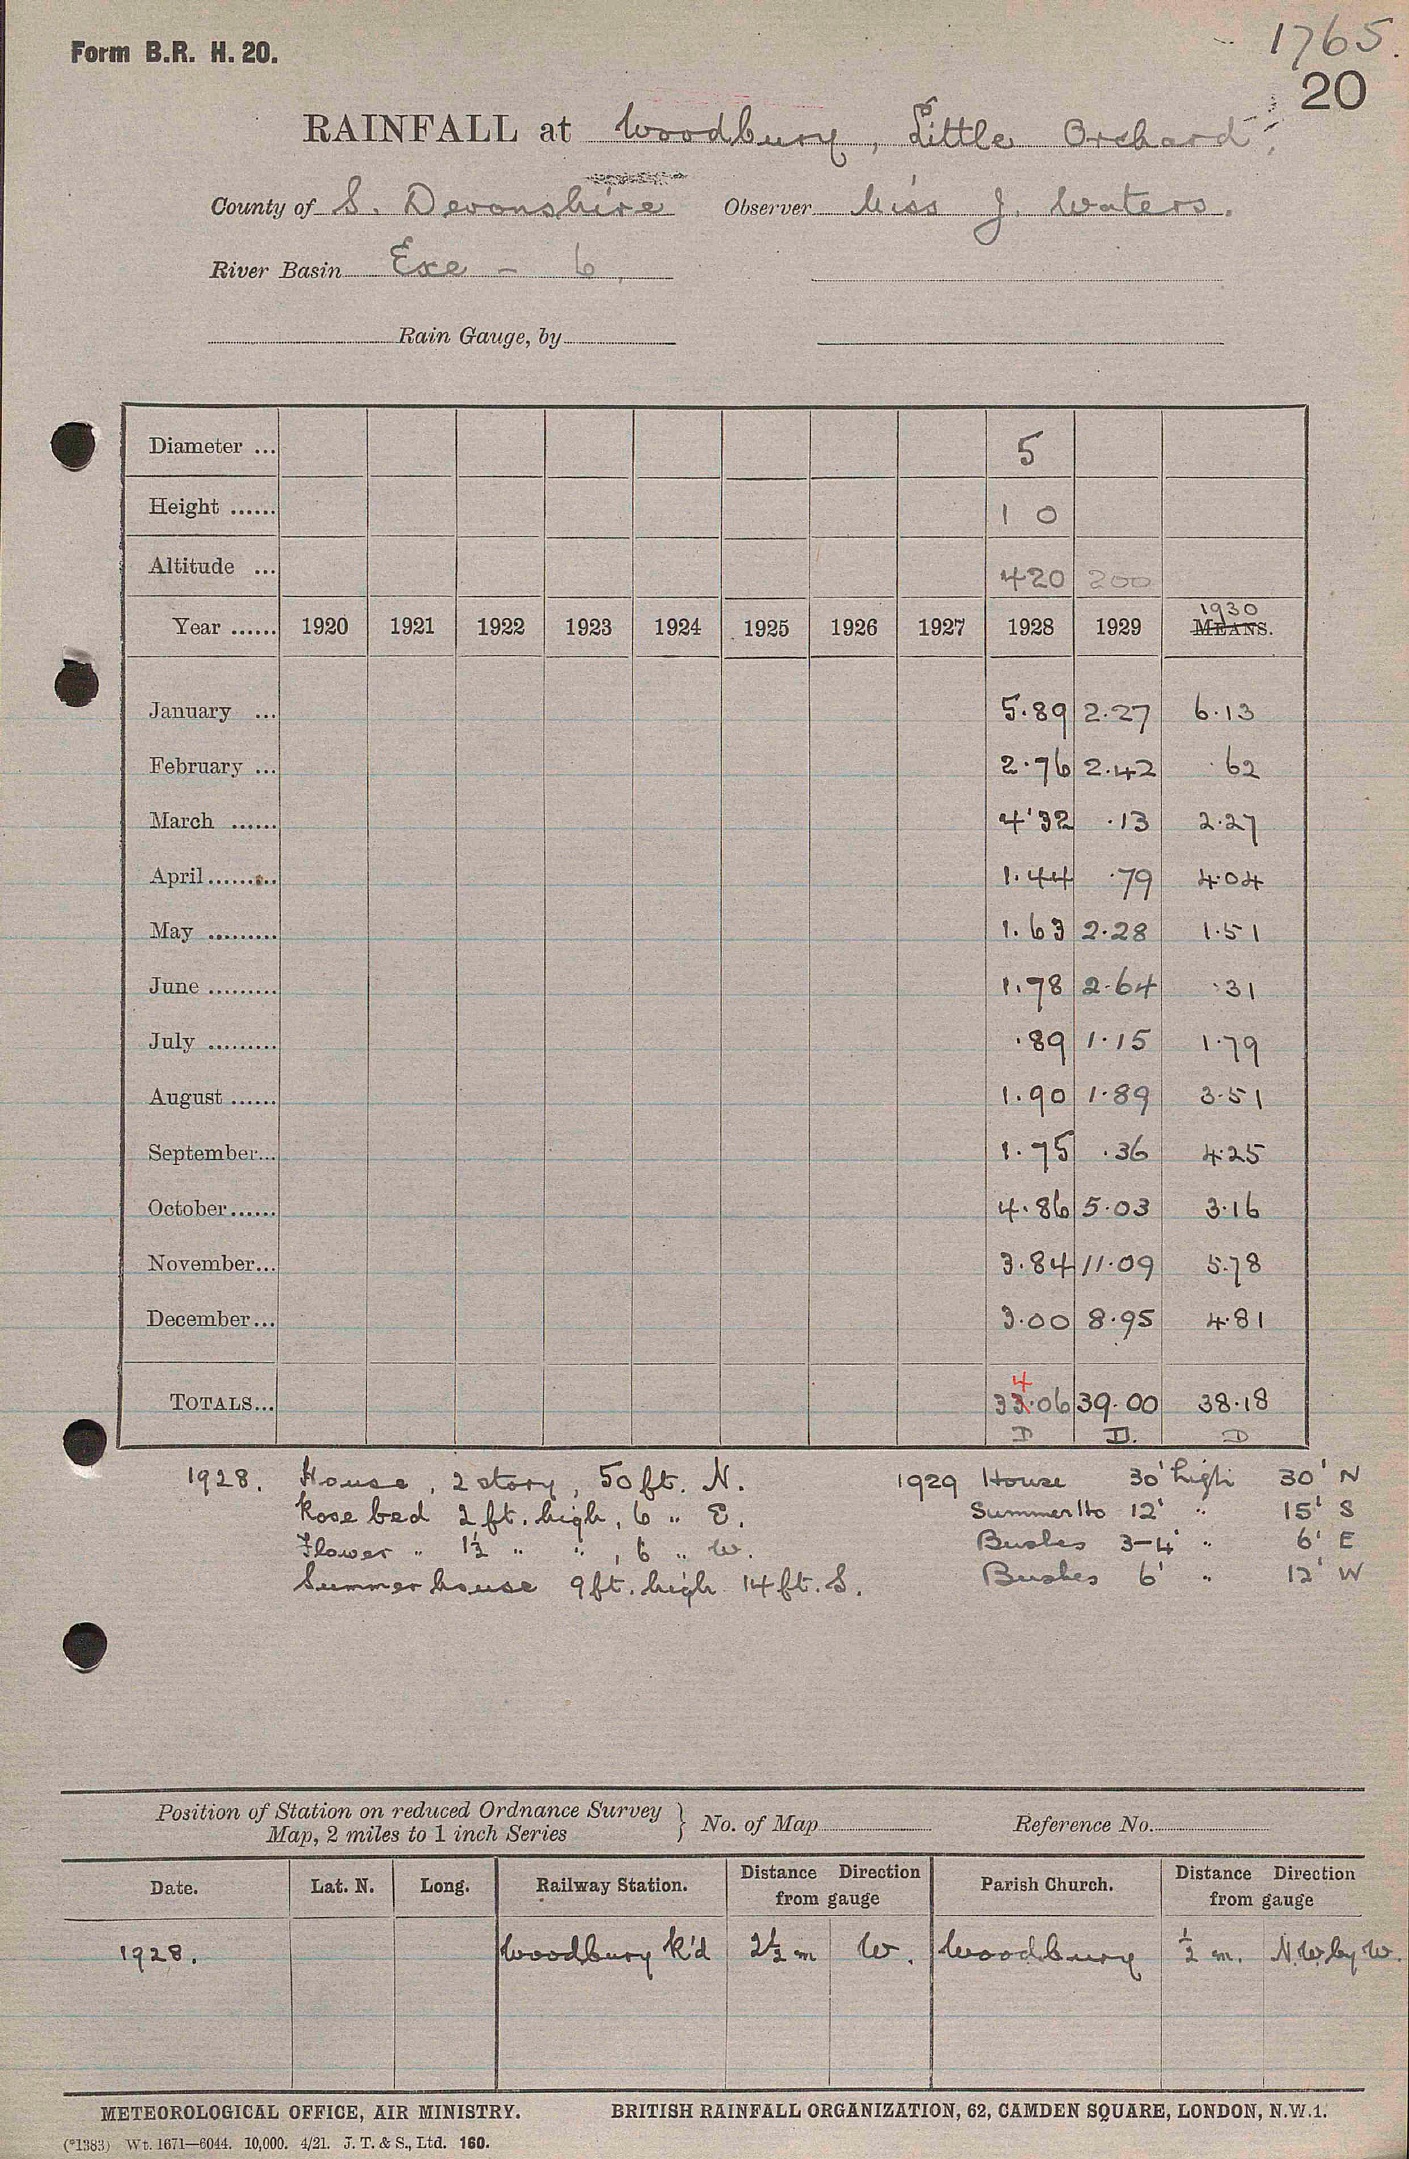 1765.
Form B.R. H. 20.
20
RAINFALL at Woodbury, Little Orchard,
County of S. Devonshire Observer Miss J. Waters.
River Basin Exe - 6.
Rain Gauge, by
Diameter ... 5
Height ...... 1 0
Altitude ... 420 200
1930
Year ...... 1920 1921 1922 1923 1924 1925 1926 1927 1928 1929 MEANS.
January ... 5.89 2.27 6.13
February ... 2.76 2.42 .62
March ...... 4.32 .13 2.27
April......... 1.44 .79 4.04
May ......... 1.63 2.28 1.51
June ......... 1.78 2.64 .31
July ......... .89 1.15 1.79
August ...... 1.90 1.89 3.51
September... 1.75 .36 4.25
October...... 4.86 5.03 3.16
November... 3.84 11.09 5.78
December... 3.00 8.95 4.81
4
TOTALS... 33.06 39.00 38.18
D D. D
1928. House, 2 story, 50 ft. N. 1929 House 30' high 30' N
Rose bed 2 ft. high, 6 " E. Summer Ho 12' " 15' S
Flower " 1½ " " , 6 " W. Bushes 3-4' " 6' E
Summer house 9 ft. high 14 ft. S. Bushes 6' " 12' W
Position of Station on reduced Ordnance Survey Map, 2 miles to 1 inch Series } No. of Map Reference No.
Date. Lat. N. Long. Railway Station. Distance Direction from gauge Parish Church. Distance Direction from gauge
1928. Woodbury R'd 2½ m W. Woodbury ½ m. N.W. by W.
METEOROLOGICAL OFFICE, AIR MINISTRY. BRITISH RAINFALL ORGANIZATION, 62, CAMDEN SQUARE, LONDON, N.W.1.
(*1383) Wt. 1671—6044. 10,000. 4/21. J. T. & S., Ltd. 160.